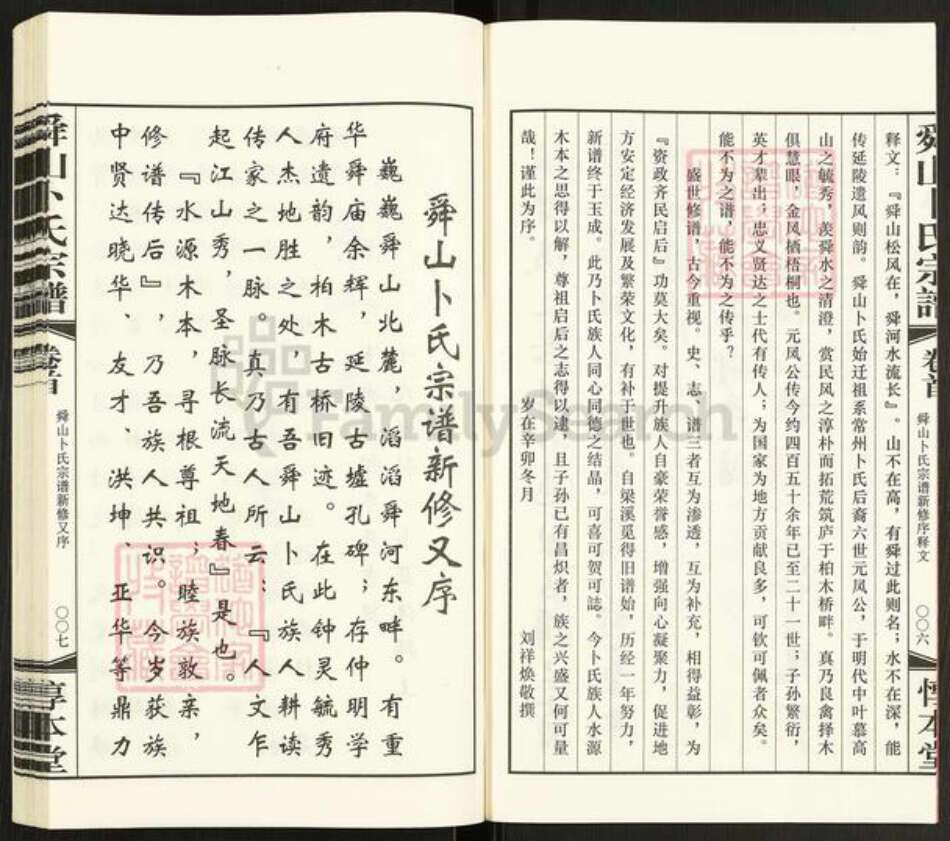 舜山卜氏宗谱
卷首
舜山卜氏宗谱新修序释文
〇〇六
惇本堂
释文：『舜山松风在，舜河水流长』。山不在高，有舜过此则名；水不在深，能
传延陵遗风则韵。舜山卜氏始迁祖系常州卜氏后裔六世元凤公，于明代中叶慕高
山之毓秀，羡舜水之清澄，赏民风之淳朴而拓荒筑庐于柏木桥畔。真乃良禽择木
俱慧眼，金凤栖梧桐也。元凤公传今约四百五十余年已至二十一世；子孙繁衍，
英才辈出；忠义贤达之士代有传人；为国家为地方贡献良多，可钦可佩者众矣。
能不为之谱，能不为之传乎？
盛世修谱，古今重视。史、志、谱三者互为渗透，互为补充，相得益彰，为
『资政齐民启后』功莫大矣。对提升族人自豪荣誉感，增强向心凝聚力，促进地
方安定经济发展及繁荣文化，有补于世也。自梁溪觅得旧谱始，历经一年努力，
新谱终于玉成。此乃卜氏族人同心同德之结晶，可喜可贺可誌。今卜氏族人水源
木本之思得以解，尊祖启后之志得以逮，且子孙已有昌炽者，族之兴盛又何可量
哉！谨此为序。
岁在辛卯冬月
刘祥焕敬撰
舜山卜氏宗谱新修又序
巍巍舜山北麓，滔滔舜河东畔。有重
华舜庙余辉，延陵古墟孔碑；存仲明学
府遗韵，柏木古桥旧迹。在此钟灵毓秀
人杰地胜之处，有吾舜山卜氏族人耕读
传家之一脉。真乃古人所云：『人文乍
起江山秀，圣脉长流天地春』是也。
『水源木本，寻根尊祖；睦族敦亲，
修谱传后』，乃吾族人共识。今岁获族
中贤达晓华、友才、洪坤、亚华等鼎力
舜山卜氏宗谱
卷首
舜山卜氏宗谱新修又序
〇〇七
惇本堂
FamilySearch